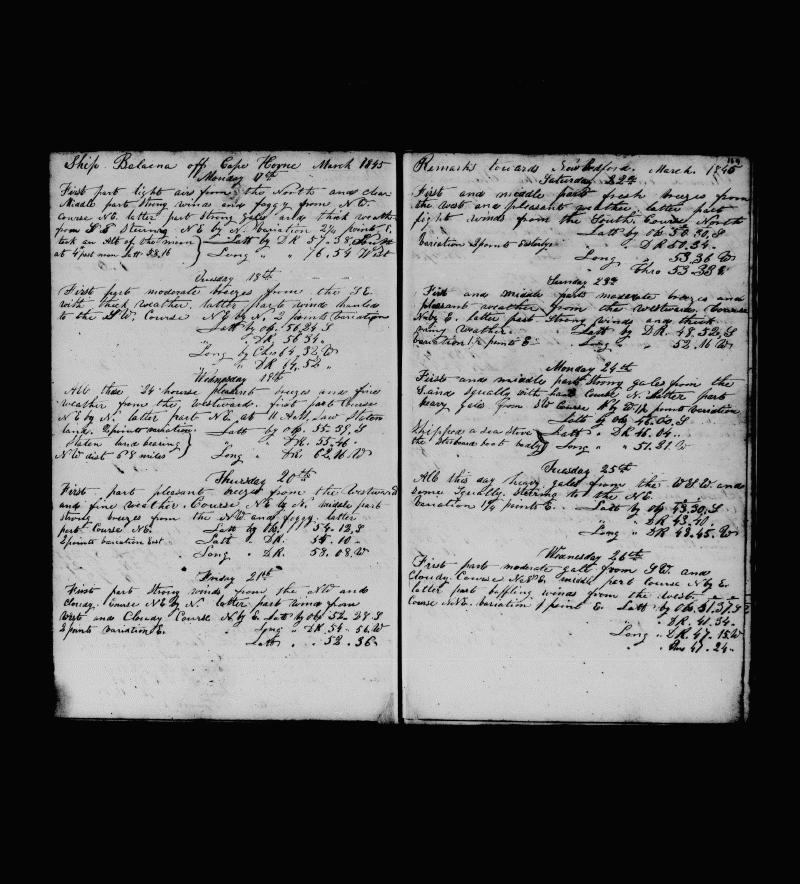 Ship Balaena off Cape Horne March 1845
Monday 17th
First part light airs from the North and clear
Middle part Strong winds and foggy from N E.
Course NE. latter part Strong gales and thick weather
from S E Steering N E by N. Variation 2¼ points E.
took an Alt of the moon } Latt by DR 57.58 South
at 4 past noon Latt 58.16 } Long " " 76.54 West
Tuesday 18th
First part moderate breezes from the S E.
with thick weather. latter part winds hauled
to the S W. Course N E by N. 2 points Variation
Latt by ob. 56.24 S
" DR. 56.34 "
Long by Chro 64.32 W
" DR 64.52 "
Wednesday 19th
All these 24 hours pleasant breezes and fine
weather from the Westward. first part Course
N E by N. latter part NE. at 11 AM, Saw Staten
land. 2 points variation. Latt by ob. 55.39. S
Staten land bearing } " " DR. 55.46 "
N W dist 68 miles } Long " DR 62.16 W
Thursday 20th
First part pleasant breezes from the Westward
and fine weather. Course N E by N. middle part
strong breezes from the NW and foggy. latter
part Course NE. Latt by Ob. 54.12. S
2 points variation East Latt " DR. 55.10 "
Long " DR. 58.08. W
Friday 21th
First part Strong winds from the NW and
Cloudy. Course N E by N latter part wind from
West and Cloudy Course N. by E. Latt by ob 52.28 S
2 points Variation E. Long " DR. 54.56. W
Latt " " 52.36 "
Remarks towards New Bedford. March. 1845
Saturday 22th
First and middle parts fresh breezes from
the West and pleasant weather, latter part
light winds from the South. Course North
Latt by ob. 50.30, S
Variation 2 points Easterly " " DR 50.34 "
Long " 53.36 W
" Chro 53.33 "
Sunday 23th
First and middle parts moderate breezes and
pleasant weather from the Westward. Course
N by E. latter part Strong winds and thick
rainy Weather. Latt by DR. 48.52, S
Variation 1¾ points E. Long " " 52.16 W
Monday 24th
First and middle part Strong gales from the
S. and Squally with hail Course N. latter part
heavy gales from SW Course N by E. 1¾ points variation
Latt by ob 46.00, S
Shipped a sea stove } Latt " DR 46.04 "
the Starboard boat badly } Long " " 51.31. W
Tuesday 25th
All this day heavy gales from the W S W and
some Squally. Steering to the N E.
Variation 1¼ points E. Latt by ob 43.30, S
" " DR 43.40 "
Long " DR 49.45. W
Wednesday 26th
First part moderate gale from S W. and
Cloudy. Course N E. middle part Course N by E.
latter part baffling winds from the West
Course N N E. variation 1 point E. Latt by Ob. 41.37. S
" DR. 41.34 "
Long " DR. 47.15 W
" Chro 47.24 "